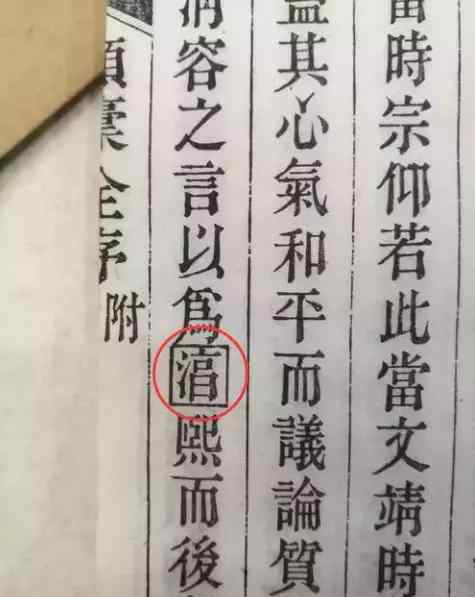 時宗仰若此當文靖時
其心氣和平而議論質
容之言以爲湻熙而後
全序
附